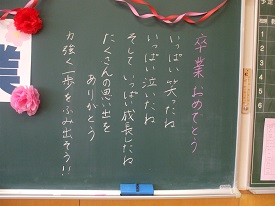 卒業 おめでとう
いっぱい 笑ったね
いっぱい 泣いたね
そして いっぱい成長したね
たくさんの思い出を
ありがとう
力強く一歩をふみ出そう!!
業
予定